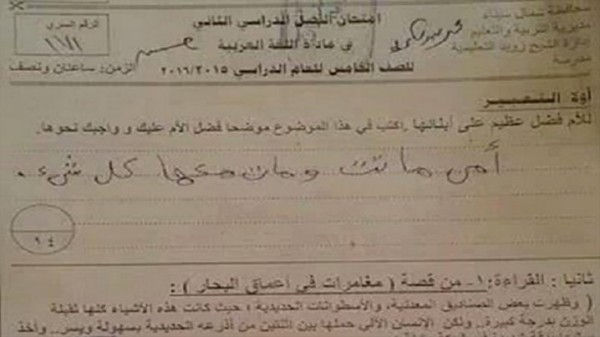 محافظة شمال سيناء
مديرية التربية والتعليم
إدارة الشيخ زويد التعليمية
مدرسة
امتحان الفصل الدراسي الثاني
في مادة اللغة العربية
للصف الخامس للعام الدراسي ٢٠١٦/٢٠١٥
الرقم السري
الزمن: ساعتان ونصف
أولا التعبير:
للأم فضل عظيم على أبنائها. اكتب في هذا الموضوع موضحا فضل الأم عليك و واجبك نحوها.
أمي ماتت ومات معها كل شيء.
١٤
ثانيا : القراءة: ١- من قصة ( مغامرات في أعماق البحار ) :
( وظهرت بعض الصناديق المعدنية، والأسطوانات الحديدية ؛ حيث كانت هذه الأشياء كلها ثقيلة
الوزن بدرجة كبيرة.. ولكن الإنسان الآلي حملها بين اثنتين من أذرعه الحديدية بسهولة ويسر.. وأخذ